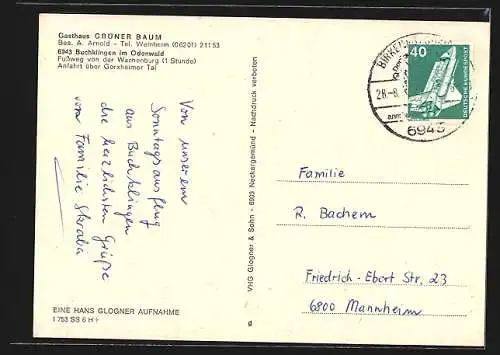 Gasthaus GRÜNER BAUM
Bes. A. Arnold - Tel. Weinheim (06201) 21153
6943 Buchklingen im Odenwald
Fußweg von der Wachenburg (1 Stunde)
Anfahrt über Gorxheimer Tal
Von unserem
Sonntagsausflug
aus Buchklingen
die herzlichsten Grüße
von Familie Skraba
EINE HANS GLOGNER AUFNAHME
I 753 SS 6 H+
VHG Glogner & Sohn - 6903 Neckargemünd - Nachdruck verboten
g
40
DEUTSCHE BUNDESPOST
28.-8.
6943
Familie
R. Bachem
Friedrich-Ebert Str. 23
6800 Mannheim